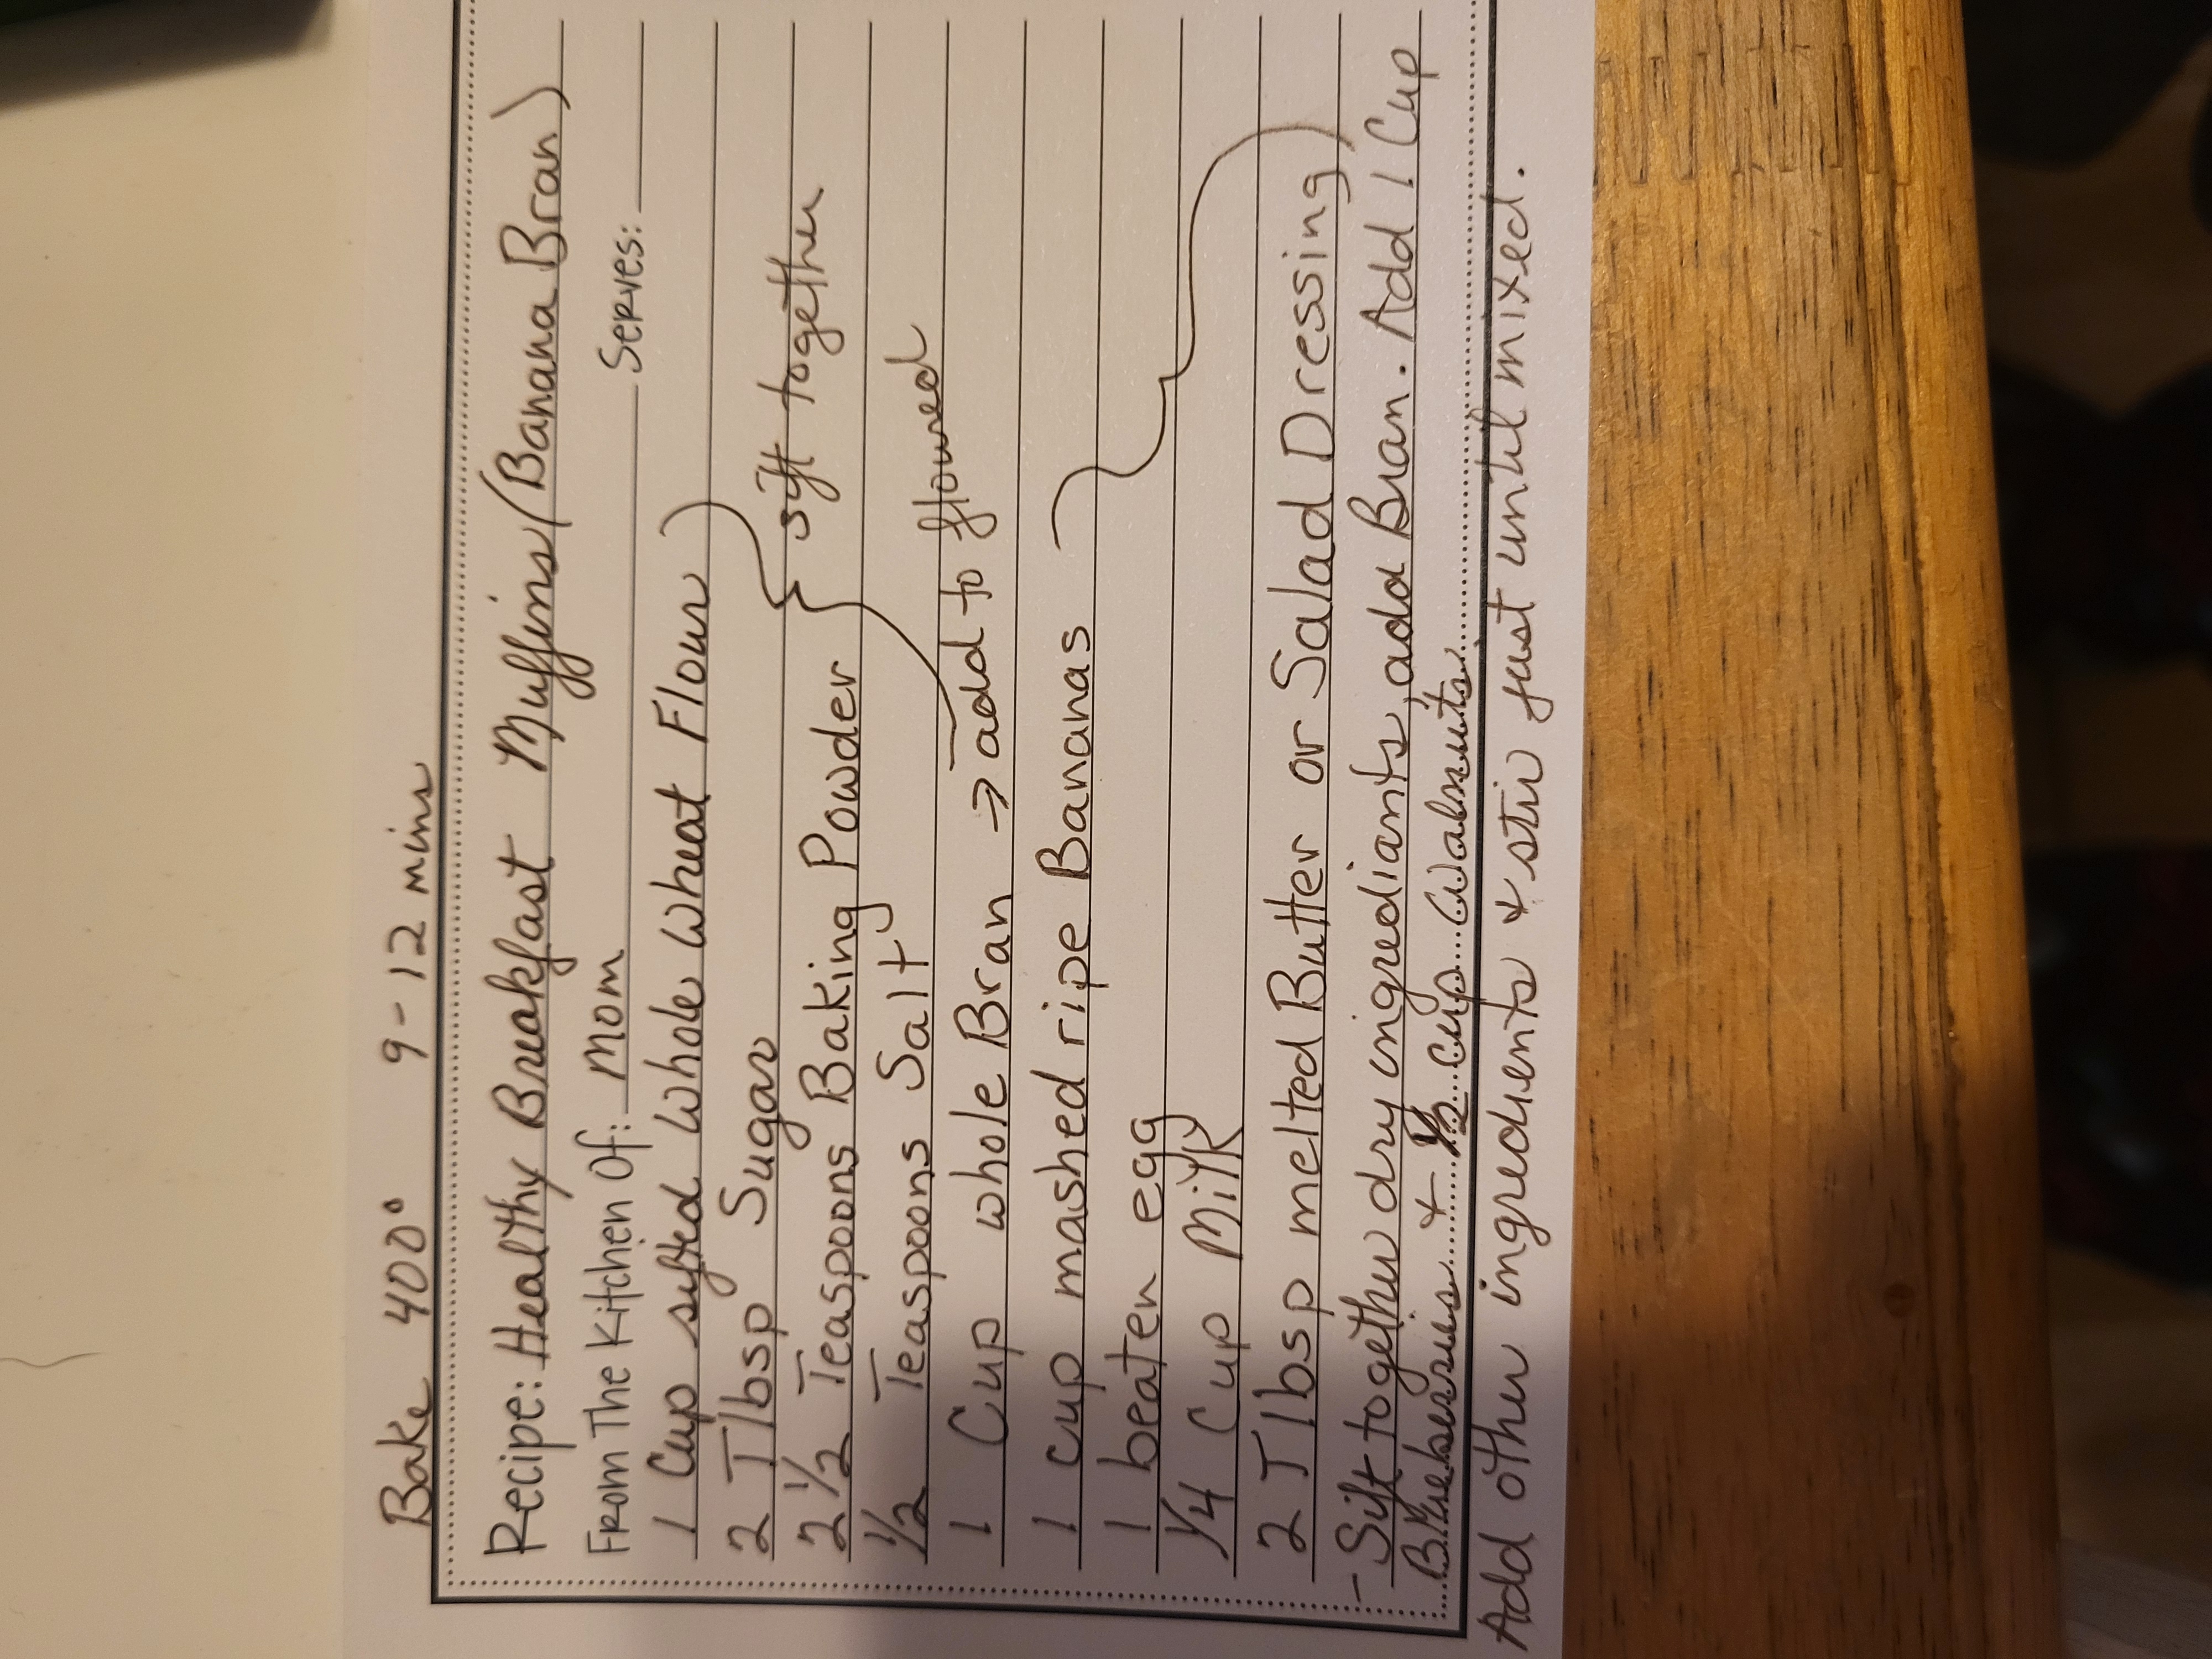 Bake 400° 9-12 mins
Recipe: Healthy Breakfast Muffins (Banana Bran)
From The Kitchen Of: Mom Serves:
1 Cup sifted whole wheat Flour
2 Tlbsp Sugar
sift together
2 1/2 Teaspoons Baking Powder
1/2 Teaspoons Salt
1 Cup whole Bran → add to floured
1 cup mashed ripe Bananas
1 beaten egg
1/4 Cup Milk
2 Tlbsp melted Butter or Salad Dressing
- Sift together dry ingrediants, add Bran. Add 1 Cup
Blueberries + 1/2 Cup Walnuts
Add other ingredients & stir just until mixed.